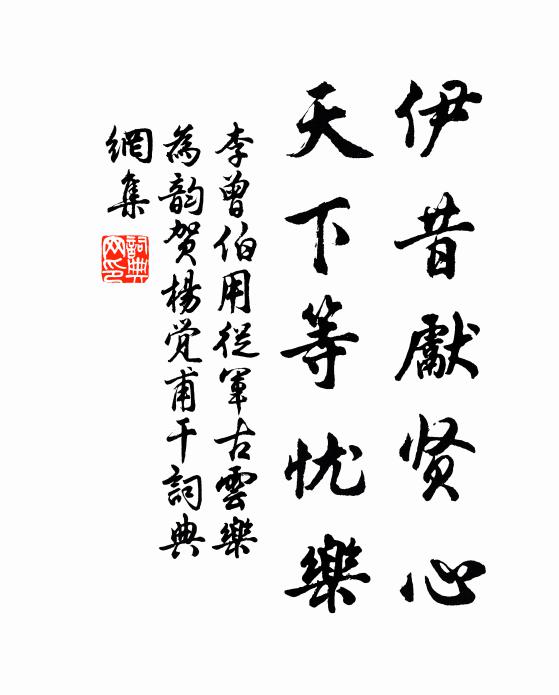 伊昔獻贤心
天下等忧樂
李曾伯用從軍古雲樂
為韵贺楊觉甫干詞典
網集
詞典网印